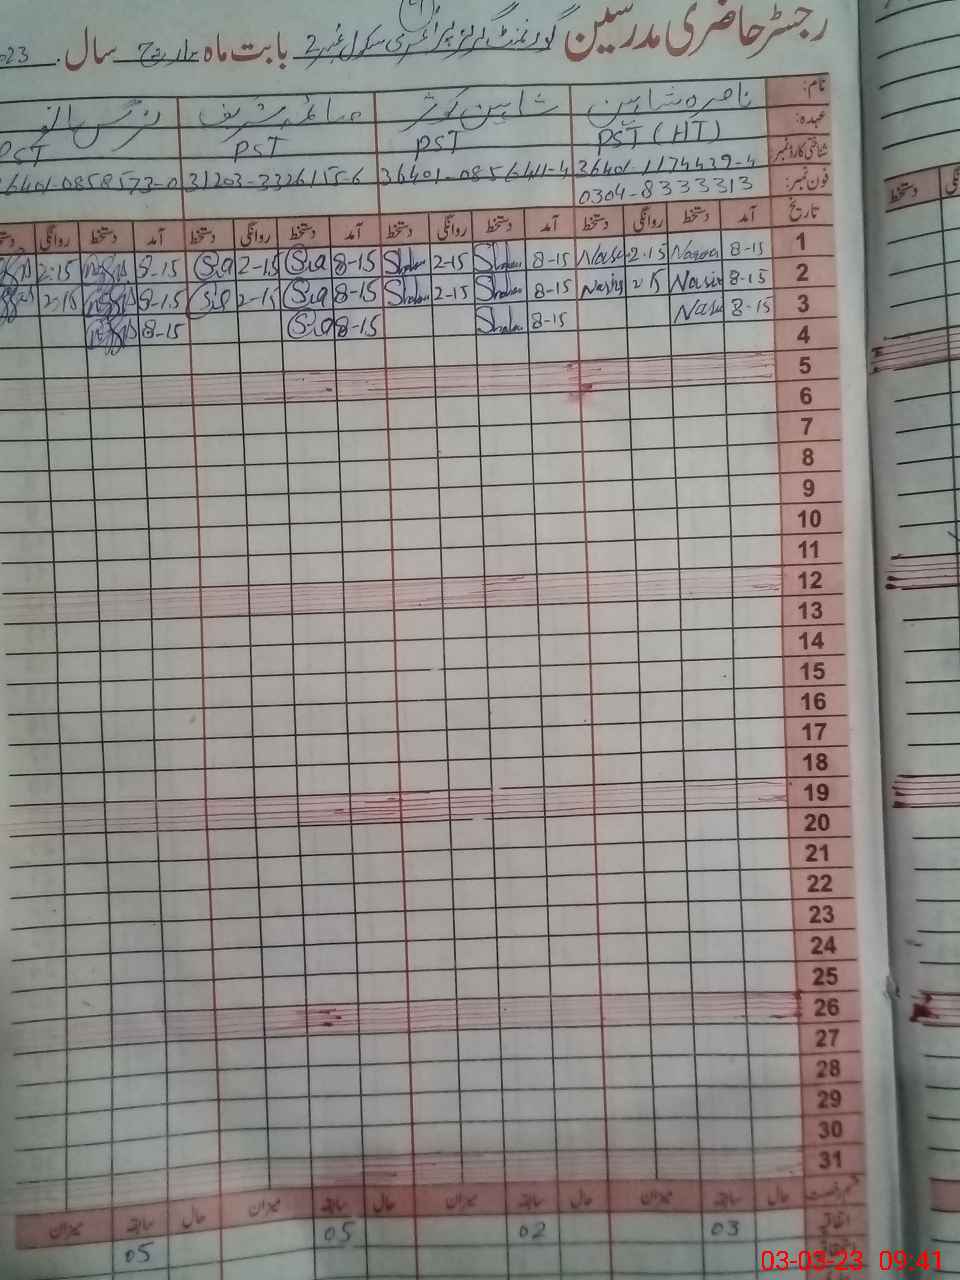 رجسٹر حاضری مدرسین گورنمنٹ گرلز پرائمری سکول نمبر 2 بابت ماہ مارچ سال 2023
نام: ناصرہ شاہین شاہین کوثر صائمہ شریف نرگس بانو
عہدہ: PST (HT) PST PST PST
شناختی کارڈ نمبر: 36401-1174439-4 36401-0856411-4 31203-3326155-6 36401-0858573-0
فون نمبر: 0304-8333313
تاریخ آمد دستخط روانگی دستخط آمد دستخط روانگی دستخط آمد دستخط روانگی دستخط آمد دستخط روانگی دستخط
1 8-15 2-15 8-15 Shaheen 2-15 8-15 2-15 8-15 2-15
2 8-15 2-15 8-15 Shaheen 2-15 8-15 2-15 8-15 2-15
3 8-15 8-15 8-15 8-15
4
5
6
7
8
9
10
11
12
13
14
15
16
17
18
19
20
21
22
23
24
25
26
27
28
29
30
31
قسم رخصت حال سابقہ میزان حال سابقہ میزان حال سابقہ میزان حال سابقہ میزان
اتفاقیہ 03 02 05 05
03-03-23 09:41